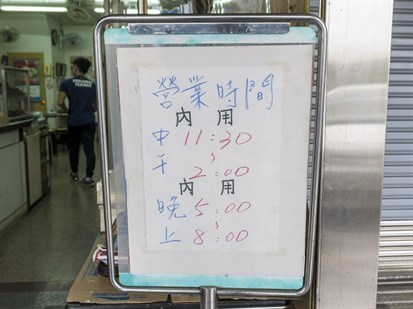 營業時間
內用
中 11:30
午 ~ 2:00
內用
晚 5:00
上 ~ 8:00